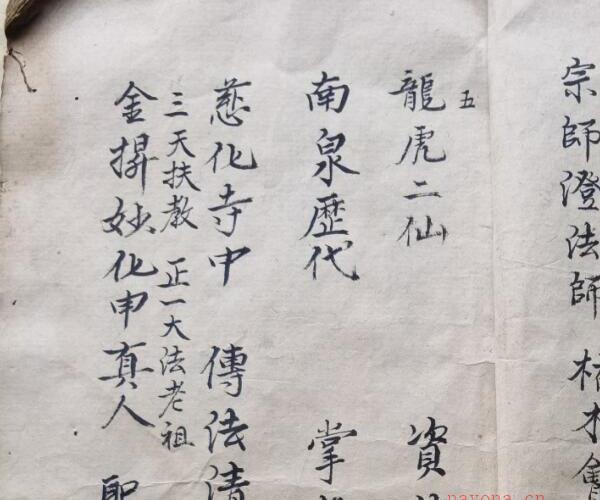 宗師澄法師
五
龍虎二仙 資
南泉歷代 掌
慈化寺中 傳法清
三天扶教 正一大法老祖
金捍妙化申真人
nayona.cn